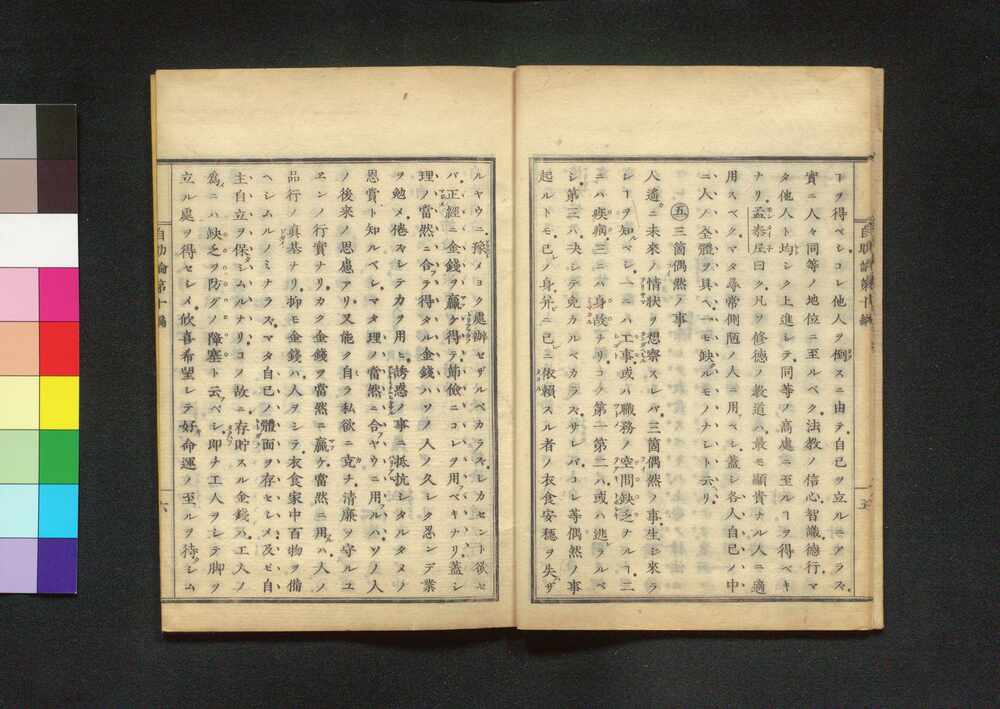 ヿヲ得ベシコレ他人ヲ倒スニ由テ自己ヲ立ルモアラズ
實ニ人々同等ノ地位ニ至ルベク法教ノ信心智識德行マ
タ他人ト均シク上進シテ同等ノ高處ニ至ルヿヲ得ベキ
ナリ孟泰尼曰ク凡ソ修德ノ教道ハ最モ顯貴ナル人ニ適
用スベクマタ尋常側陋ノ人ニ用ベシ蓋シ各人自己ノ中
ニ人ノ全體ヲ具ヘ一モ缺ルモノナシト云リ
㊄三箇偶然ノ事
人遙ニ未來ノ情狀ヲ想察スレバ三箇偶然ノ事生シ來ラ
ンヿヲ知ベシ一ニハ工事或ハ職務ノ空間缺乏ナルヿ二
ニハ疾病三ニハ身故ナリコノ第一第二ハ或ハ逃ルベ
シ第三ハ決シテ免カルベカラズサレバコレ等偶然ノ事
起ルトモ己ノ身并ニ己ニ依賴スル者ノ衣食安穩ヲ失ザ
自助論第十編
五
ルヤウニ豫メヨク處辦セザルベカラズシカセント欲セ
バ正經ニ金錢ヲ贏ケ得テ節儉ニコレヲ用ベキナリ蓋シ
理ノ當然ニ合テ得タル金錢ハソノ人ノ久シク忍ンデ業
ヲ勉メ倦ズシテ力ヲ用ヒ誘惑ノ事ニ抵抗シタルタメノ
恩賞ト知ルベシマタ理ノ當然ニ合ヤウニ用ルハソノ人
ノ後來ノ思慮アリ又能ク自ラ私欲ニ克チ清廉ヲ守ルユ
エンノ行實ナリカク金錢ヲ當然ニ贏ケ當然ニ用ハ人ノ
品行ノ眞基ナリ抑モ金錢ハ人ヲシテ衣食家中百物ヲ備
ヘシムルノミナラズマタ自己ノ體面ヲ存セシメ及ビ自
主自立ヲ保シムルナリコノ故ニ存貯スル金錢ハ工人ノ
爲ニハ缺乏ヲ防グノ障塞ト云ベシ即チ工人ヲシテ脚ヲ
立ル處ヲ得セシメ欣喜希望シテ好命運ノ至ルヲ待シム
自助論第十編
六